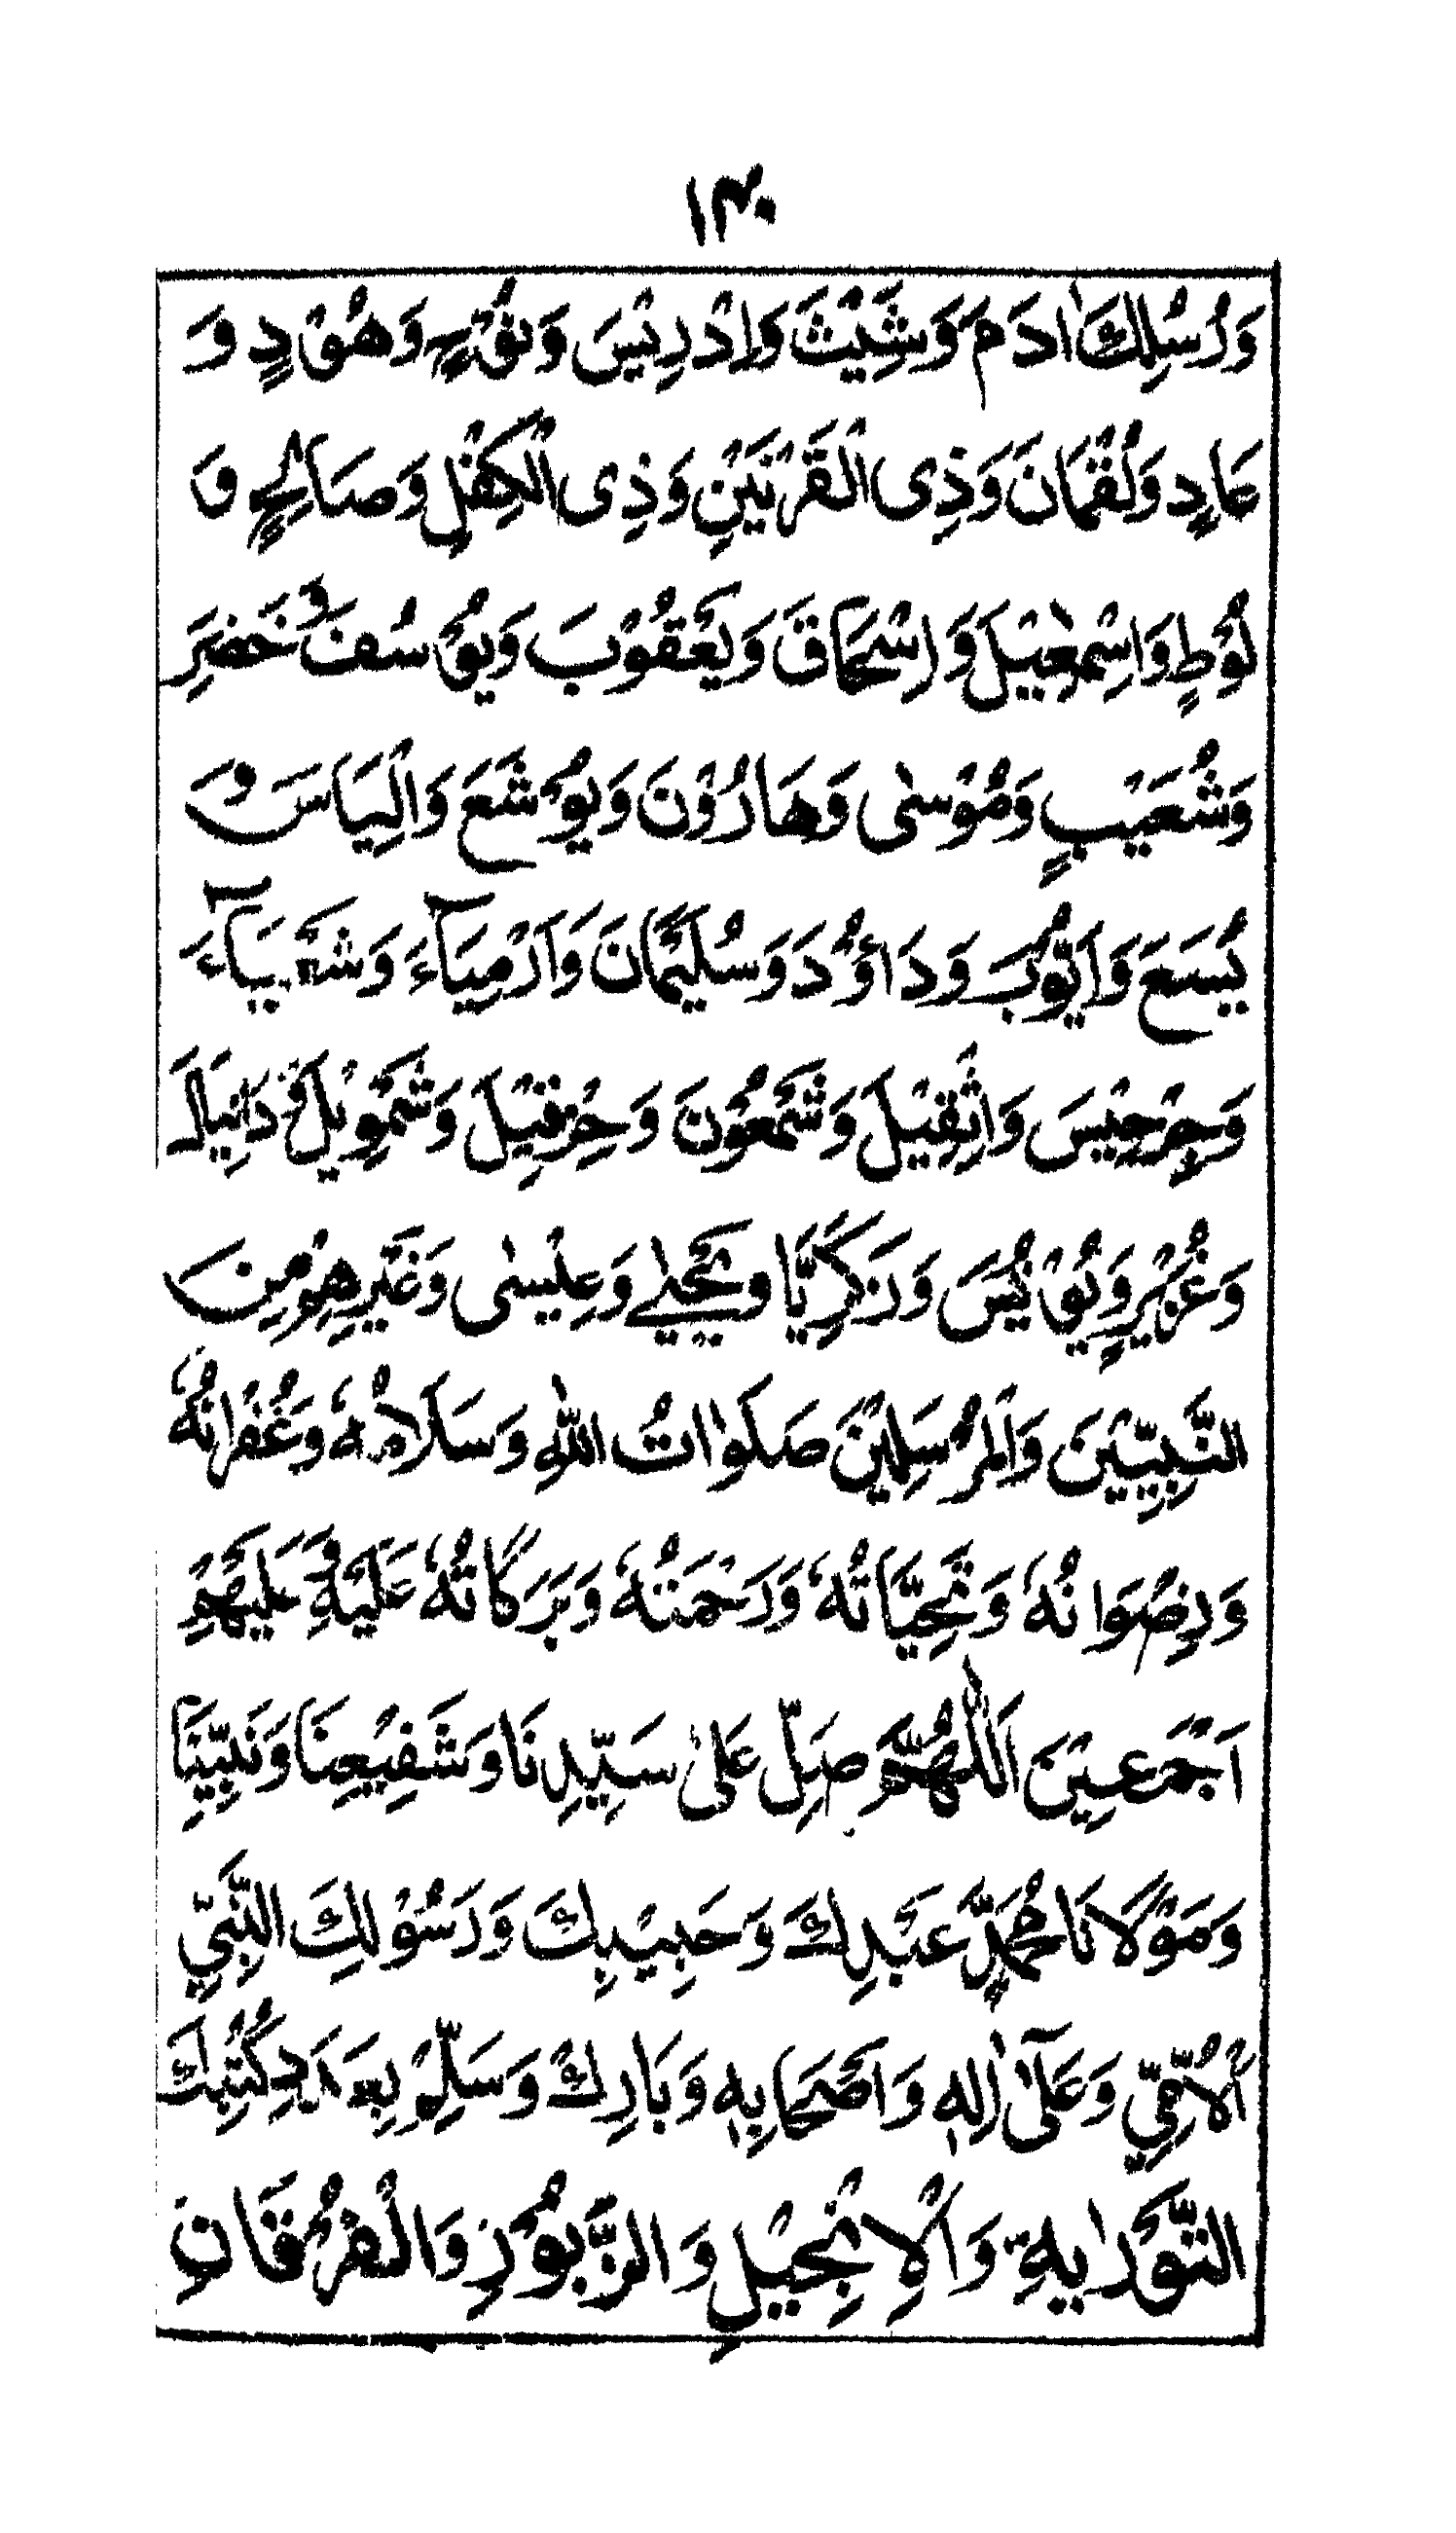 ۱۴۰
وَرُسُلِكَ اٰدَمَ وَشِيْثَ وَاِدْرِيْسَ وَنُوْحٍ وَهُوْدٍ وَ
عَادٍ وَلُقْمَانَ وَذِى الْقَرْنَيْنِ وَذِى الْكِفْلِ وَصَالِحٍ وَ
لُوْطٍ وَاِسْمٰعِيْلَ وَاِسْحَاقَ وَيَعْقُوْبَ وَيُوْسُفَ وَخَضِرَ
وَشُعَيْبٍ وَمُوْسٰى وَهَارُوْنَ وَيُوْشَعَ وَالِيَاسَ وَ
يَسَعَ وَاَيُّوْبَ وَدَاوُٗدَ وَسُلَيْمَانَ وَاَرْمِيَآءَ وَشَعْيَآءَ
وَجِرْجِيْسَ وَاِثْقِيْلَ وَشَمْعُوْنَ وَحِزْقِيْلَ وَشَمْوِيْلَ وَدَانِيَالَ
وَعُزَيْرٍ وَيُوْنُسَ وَزَكَرِيَّا وَيَحْيٰى وَعِيْسٰى وَغَيْرِهِمْ مِنَ
النَّبِيِّيْنَ وَالْمُرْسَلِيْنَ صَلَوٰاتُ اللّٰهِ وَسَلَامُهٗ وَغُفْرَانُهٗ
وَرِضْوَانُهٗ وَتَحِيَّاتُهٗ وَرَحْمَتُهٗ وَبَرَكَاتُهٗ عَلَيْهِ وَعَلَيْهِمْ
اَجْمَعِيْنَ اَللّٰهُمَّ صَلِّ عَلٰى سَيِّدِنَا وَشَفِيْعِنَا وَنَبِيِّنَا
وَمَوْلَانَا مُحَمَّدٍ عَبْدِكَ وَحَبِيْبِكَ وَرَسُوْلِكَ النَّبِيِّ
الْاُمِّيِّ وَعَلٰٓى اٰلِهٖ وَاَصْحَابِهٖ وَبَارِكْ وَسَلِّمْ بِعَدَدِ كُتُبِكَ
التَّوْرٰيةِ وَالْاِنْجِيْلِ وَالزَّبُوْرِ وَالْفُرْقَانِ